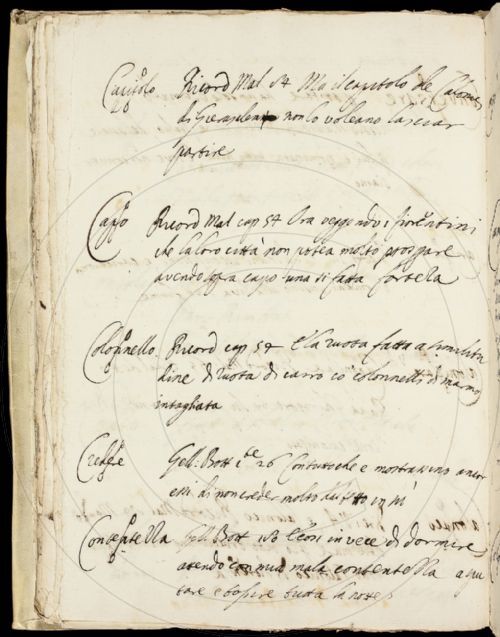 Capitolo Ricord Mal 54 Ma il capitolo de Calonaci
di Gerusalem non lo voleano lasciar
partire
Capo Ricord Mal cap 54 Ora veggendo i fiorentini
che la loro città non potea molto prosperare
avendo sopra capo una sì fatta fortezza
Colonnello Ricord cap 54 e la ruota fatta a similitu
dine di ruota di carro co colonnelli di marmo
intagliata
Credere Gell. Bott 26 Contuttoche e mostrassino ancor
essi di non creder molto da tetto in sù
Contentella Gell. Bott e così in vece di dormire
avendo mala contentella a qui
tare e tossire tutta la notte